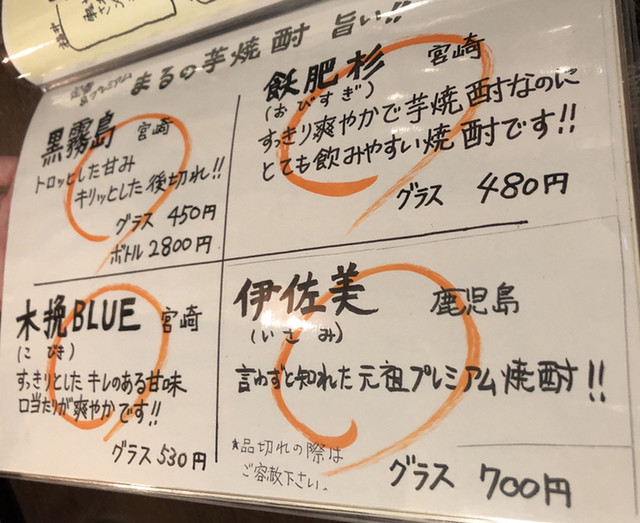 まるの芋焼酎 旨い!!
黒霧島 宮崎
トロッとした甘み
キリッとした後切れ!!
グラス 450円
ボトル 2800円
飫肥杉 宮崎
(おびすぎ)
すっきり爽やかで芋焼酎なのに
とても飲みやすい焼酎です!!
グラス 480円
木挽BLUE 宮崎
(こびき)
すっきりとしたキレのある甘味
口当たりが爽やかです!!
グラス 530円
伊佐美 鹿児島
(いさみ)
言わずと知れた元祖プレミアム焼酎!!
*品切れの際は
ご容赦下さい。
グラス 700円